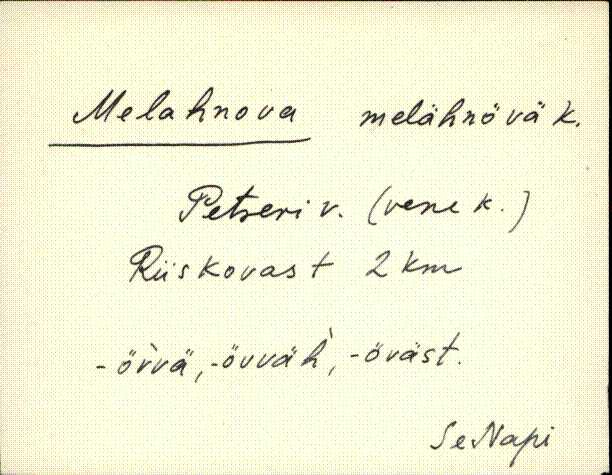 Melahnova melähnövä k.
Petseri v. (vene k.)
Riiskovast 2 km
-öv̀vä, -övväh̀, -övä̀st.
SeNapi